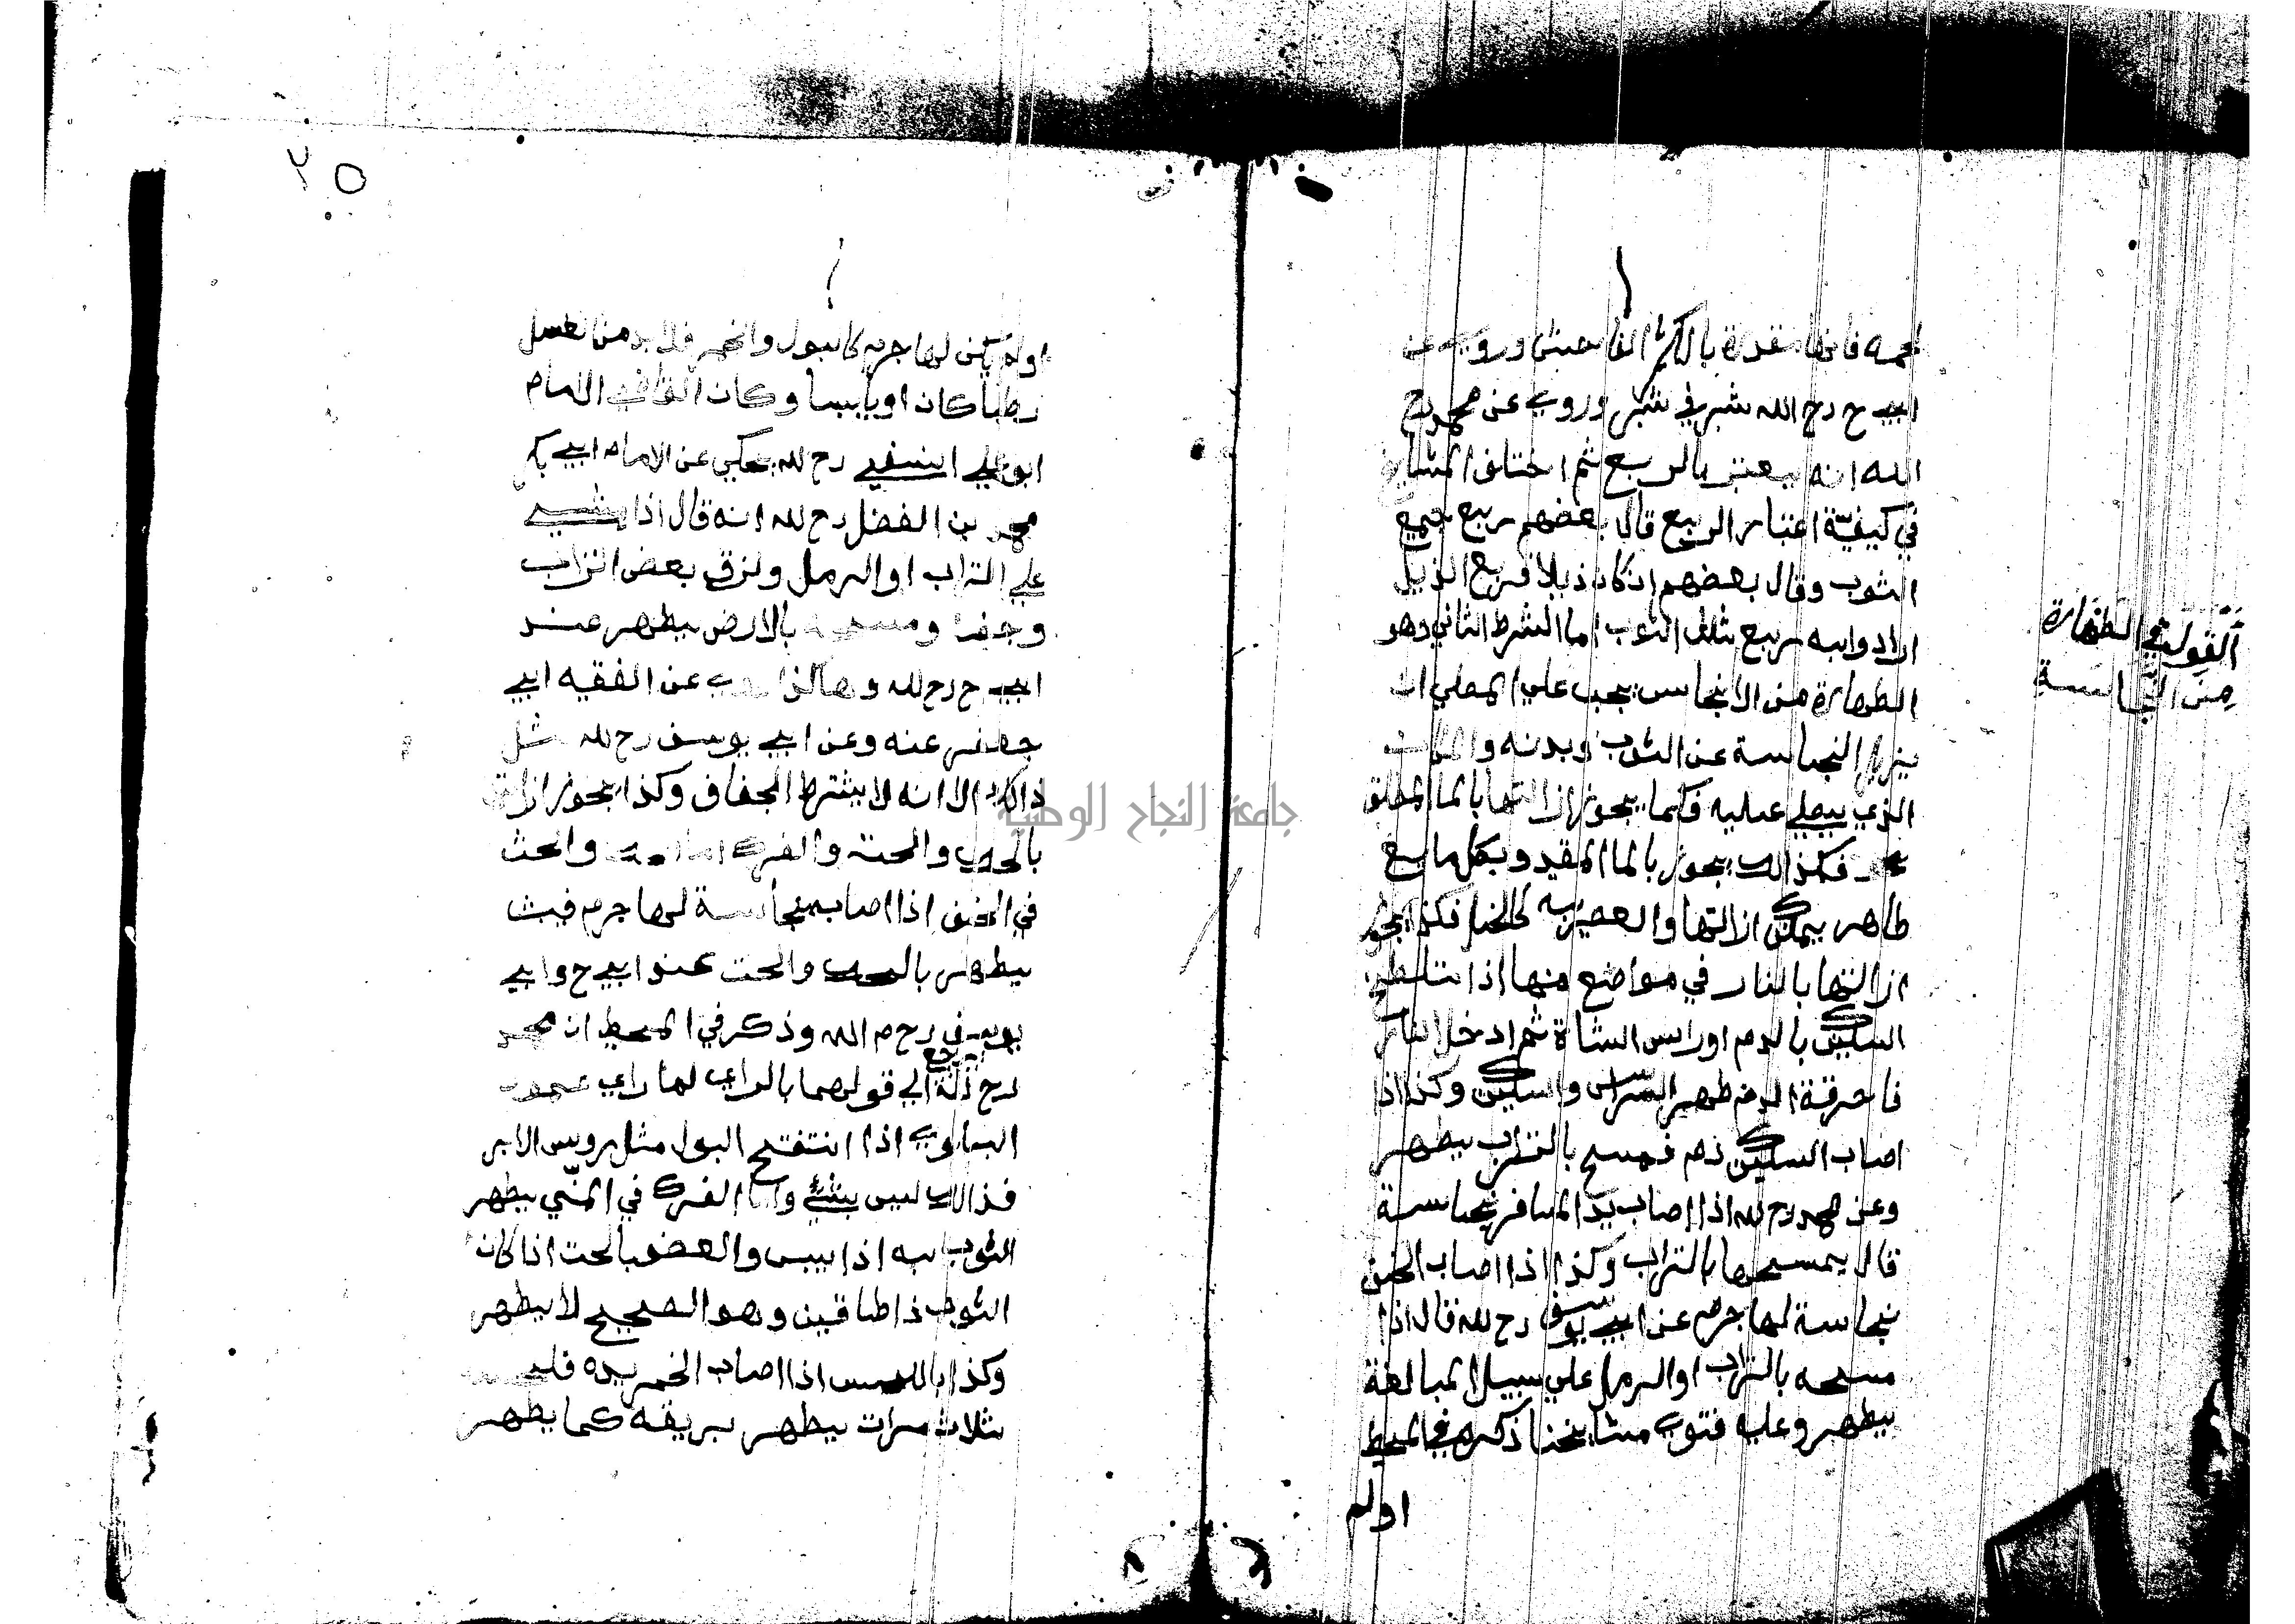 لحمه فانها مقدرة بالكثير الفاحش وروي عن
ابي ح رح الله شبر في شبر وروي عن محمد رح
الله انه يعتبر بالربع ثم اختلف المشايخ
في كيفية اعتبار الربع قال بعضهم ربع جميع
الثوب وقال بعضهم ان كان ذيلا فربع الذيل
اراد وابه ربع ثلك الثوب اما الشرط الثاني وهو
الطهارة من الانجاس يجب علي المصلي ان
يزيل النجاسة عن الثوب وبدنه والمكان
الذي يصلي عليه فكما يجوز ازالتها بالما المطلق
فكذالك يجوز بالما المقيد وبكل مايع
طاهر يمكن ازالتها والعصير به كالخل فكذا يجوز
ازالتها بالنار في مواضع منها اذا تلطخ
السكين بالدم او راس الشاة ثم ادخل النار
فاحرقة الدم طهر الراس والسكين وكذا اذا
اصاب السكين دم فمسح بالتراب يطهر
وعن محمد رح لله اذا اصاب يد المسافر نجاسة
قال يمسحها بالتراب وكذا اذا اصاب الخف
نجاسة لها جرم عن ابي يوسف رح لله قال اذا
مسحه بالتراب او الرمل علي سبيل المبالغة
يطهر وعليه فتوي مشايخنا ذكره في المحيط
اولم
القول في الطهارة
من النجاسة
٢٥
اولم يكن لها جرم كالبول والخمر فلا بد من الغسل
رطبا كان او يابسا وكان القاضي الامام
ابو علي النسفي رح لله يحكي عن الامام ابي بكر
محمد بن الفضل رح لله انه قال اذا مشي
علي التراب او الرمل ولزق بعض التراب
وجف ومسحه بالارض يطهر عند
ابي ح رح لله وهاكذا عن الفقيه ابي
جعفر عنه وعن ابي يوسف رح لله مثل
ذالك الا انه لا يشترط الجفاف وكذا يجوز ازالتها
بالحك والحت والفرك اما الحك والحث
في الخف اذا اصابه نجاسة لها جرم فيبث
يطهر بالحك والحت عند ابي ح وابي
يوسف رح م الله وذكر في المحيط ان محمد
رح لله رجع الي قولهما بالراي لما راي عموم
البلوي اذا انتفتح البول مثل رويس الابر
فذالك ليس بشئ واما الفرك في المني يطهر
الثوب به اذا يبس والعضو بالحت اذا كان
الثوب ذا طاقين وهو الصحيح لا يطهر
وكذا باللحس اذا اصاب الخمر يده فلحسه
ثلاث مرات يطهر بريقه كما يطهر
جامعة النجاح الوطنية